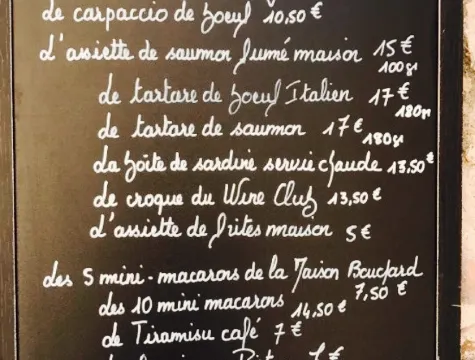 de carpaccio de boeuf 10,50 €
d'assiette de saumon fumé maison 15 €
100gr
de tartare de boeuf Italien 17 €
180gr
de tartare de saumon 17 €
180gr
La boîte de sardine servie chaude 13,50 €
de croque du Wine Club 13,50 €
d'assiette de frites maison 5 €
des 5 mini-macarons de la Maison Bouchard
7,50 €
des 10 mini macarons 14,50 €
de Tiramisu café 7 €